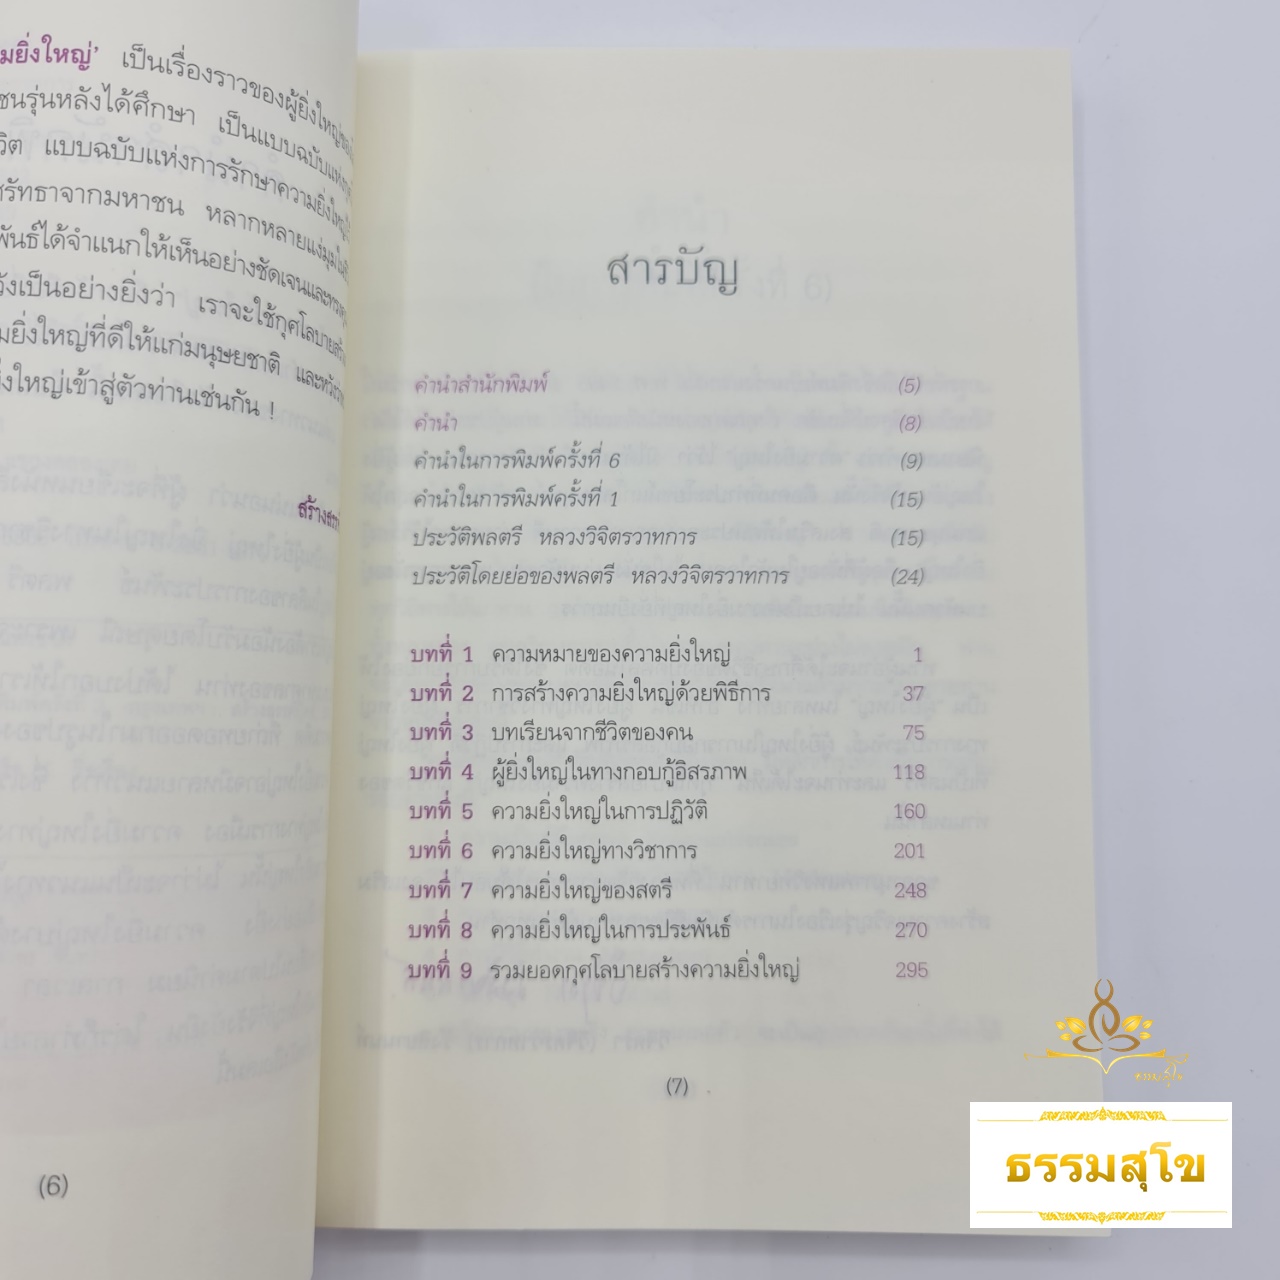 มยิ่งใหญ่' เป็นเรื่องราวของผู้ยิ่งใหญ่
ชนรุ่นหลังได้ศึกษา เป็นแบบฉบับแห่ง
วิต แบบฉบับแห่งการรักษาความยิ่งใหญ่
ศรัทธาจากมหาชน หลากหลายแง่มุม
พันธ์ได้จำแนกให้เห็นอย่างชัดเจนและ
วังเป็นอย่างยิ่งว่า เราจะใช้กุศโลบาย
มยิ่งใหญ่ที่ดีให้แก่มนุษยชาติ และ
งใหญ่เข้าสู่ตัวท่านเช่นกัน !
(6)
สารบัญ
คำนำสำนักพิมพ์ (5)
คำนำ (8)
คำนำในการพิมพ์ครั้งที่ 6 (9)
คำนำในการพิมพ์ครั้งที่ 1 (15)
ประวัติพลตรี หลวงวิจิตรวาทการ (15)
ประวัติโดยย่อของพลตรี หลวงวิจิตรวาทการ (24)
บทที่ 1 ความหมายของความยิ่งใหญ่ 1
บทที่ 2 การสร้างความยิ่งใหญ่ด้วยพิธีการ 37
บทที่ 3 บทเรียนจากชีวิตของคน 75
บทที่ 4 ผู้ยิ่งใหญ่ในทางกอบกู้อิสรภาพ 118
บทที่ 5 ความยิ่งใหญ่ในการปฏิวัติ 160
บทที่ 6 ความยิ่งใหญ่ทางวิชาการ 201
บทที่ 7 ความยิ่งใหญ่ของสตรี 248
บทที่ 8 ความยิ่งใหญ่ในการประพันธ์ 270
บทที่ 9 รวมยอดกุศโลบายสร้างความยิ่งใหญ่ 295
(7)
ธรรมสุโข
ธรรมสุโข